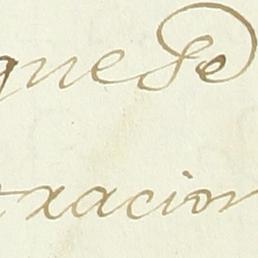 que se
xacion